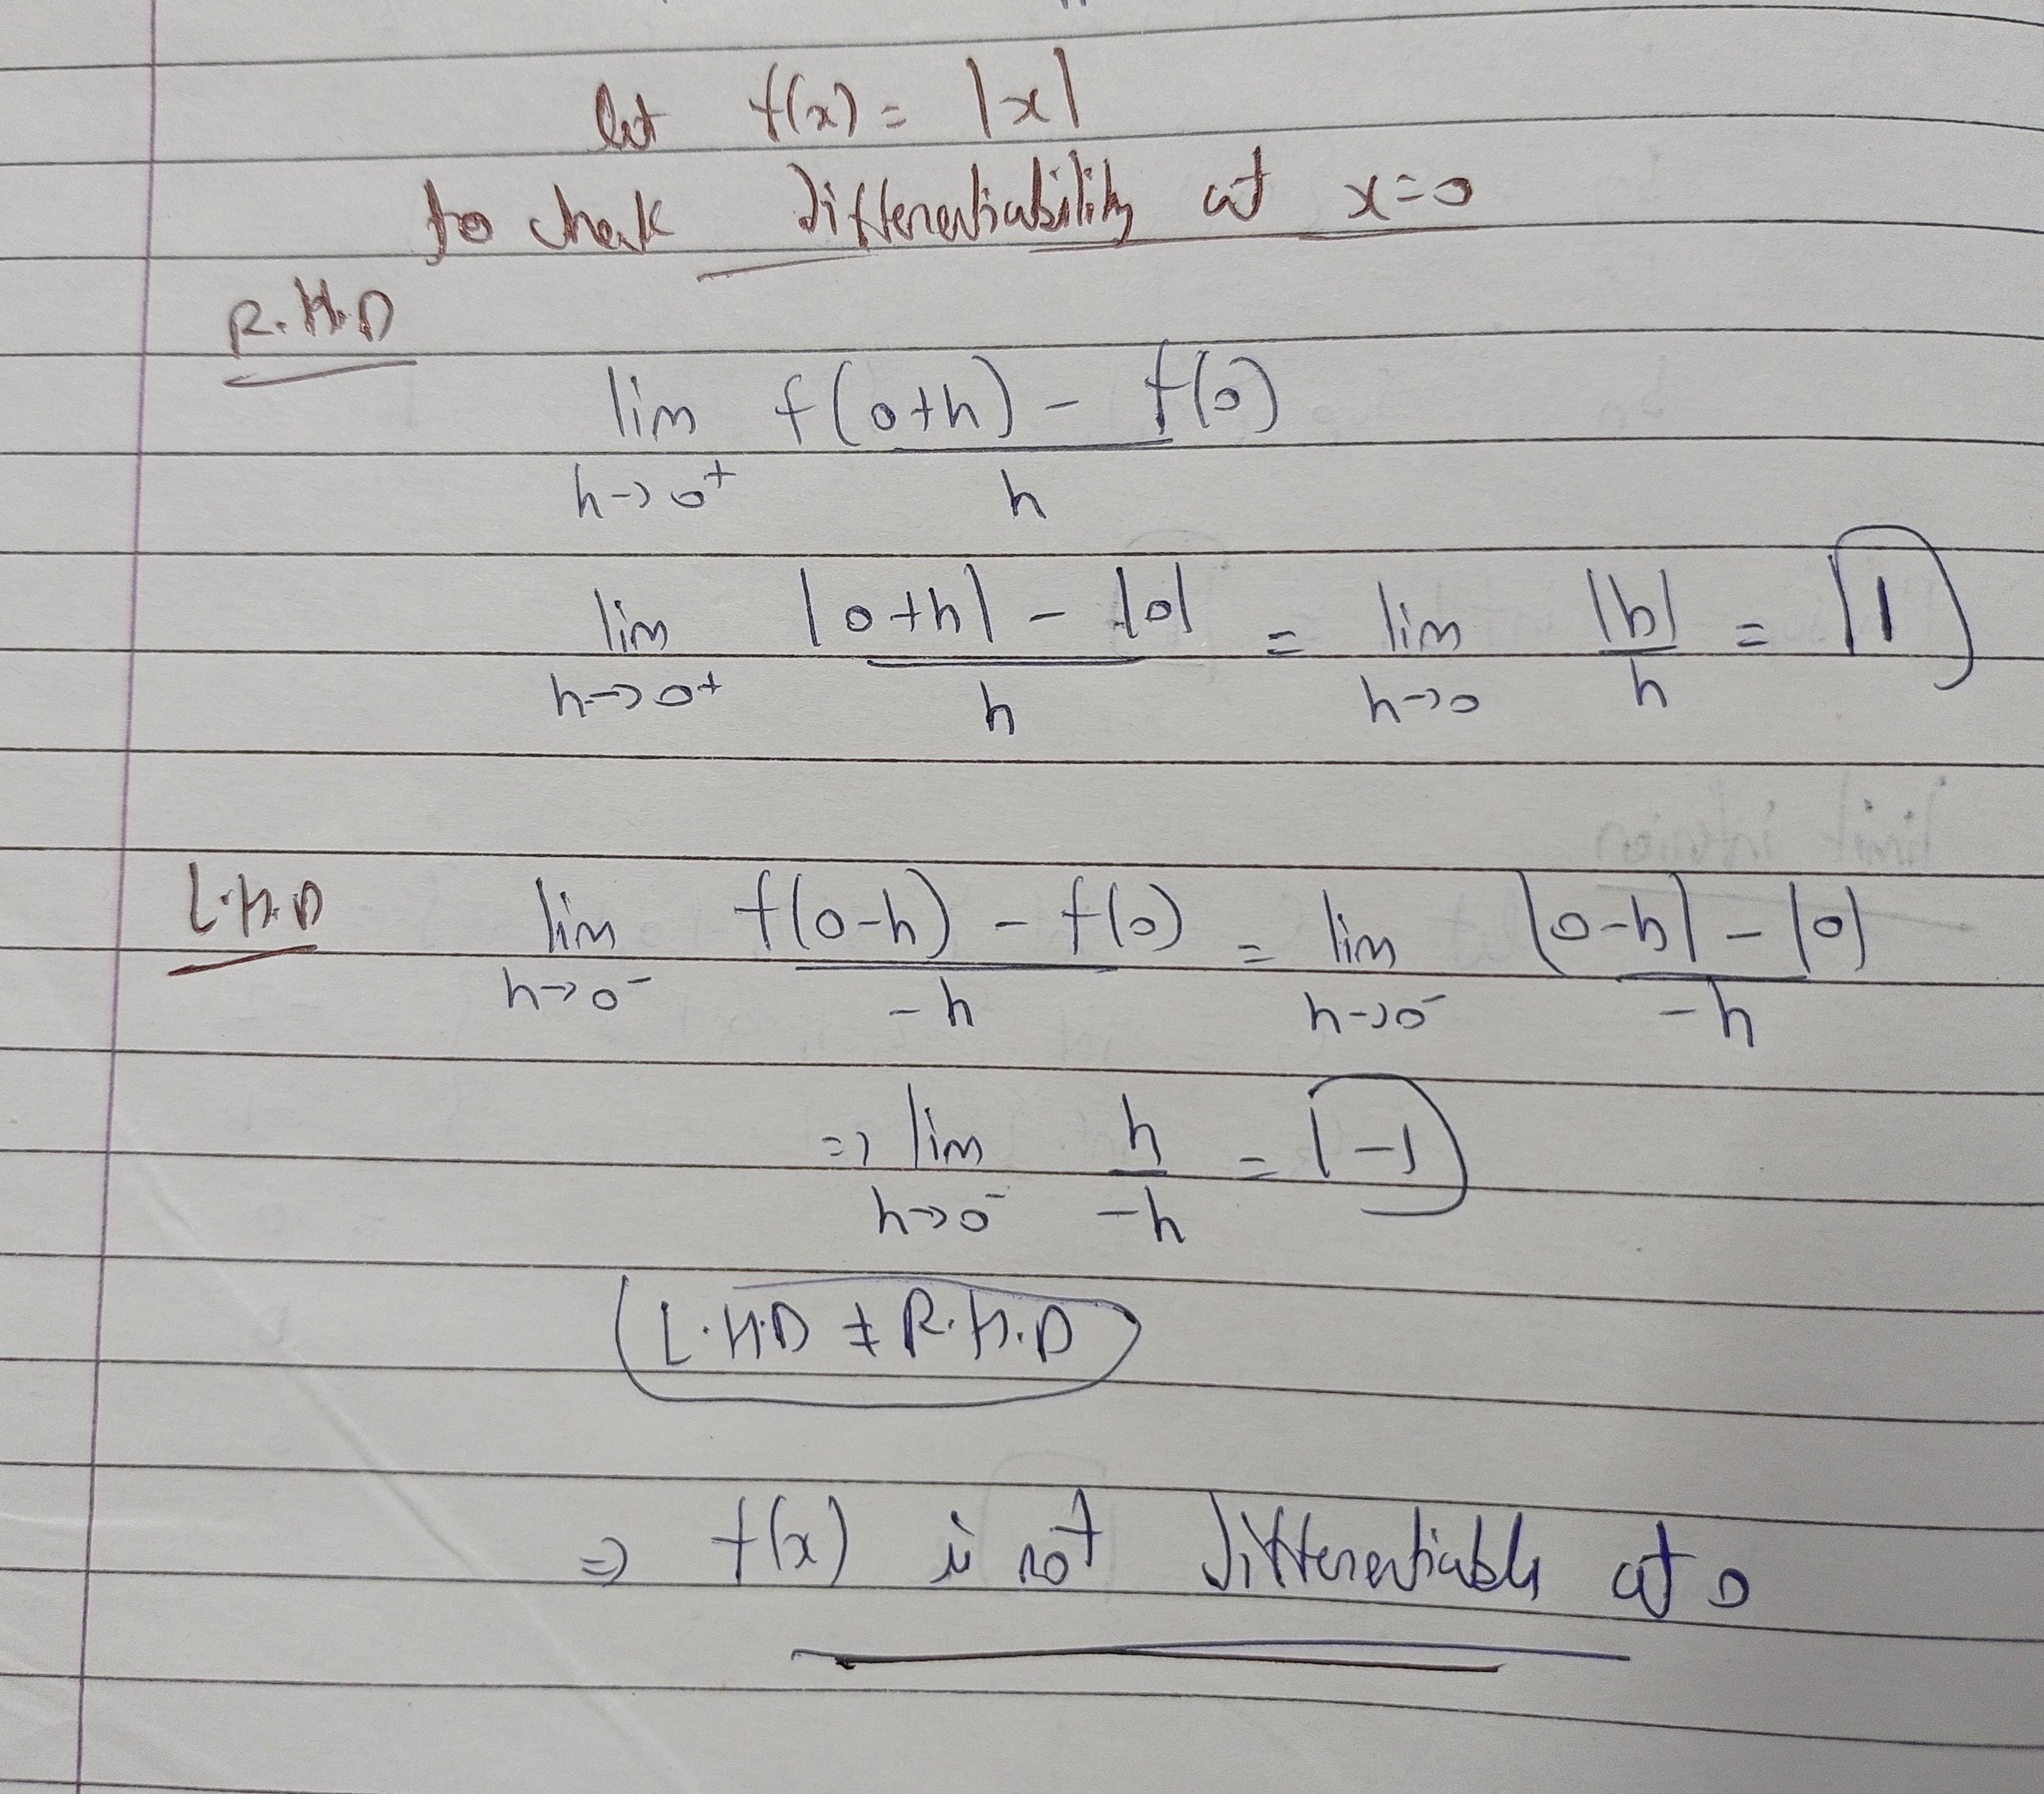 let f(x) = |x|
to check differentiability at x=0
R.H.D
lim f(0+h) - f(0)
h→0⁺ h
lim |0+h| - |0| = lim |h| = 1
h→0⁺ h h→0 h
L.H.D lim f(0-h) - f(0) = lim |0-h| - |0|
h→0⁻ -h h→0⁻ -h
=> lim h = -1
h→0⁻ -h
L.H.D ≠ R.H.D
=> f(x) is not differentiable at 0